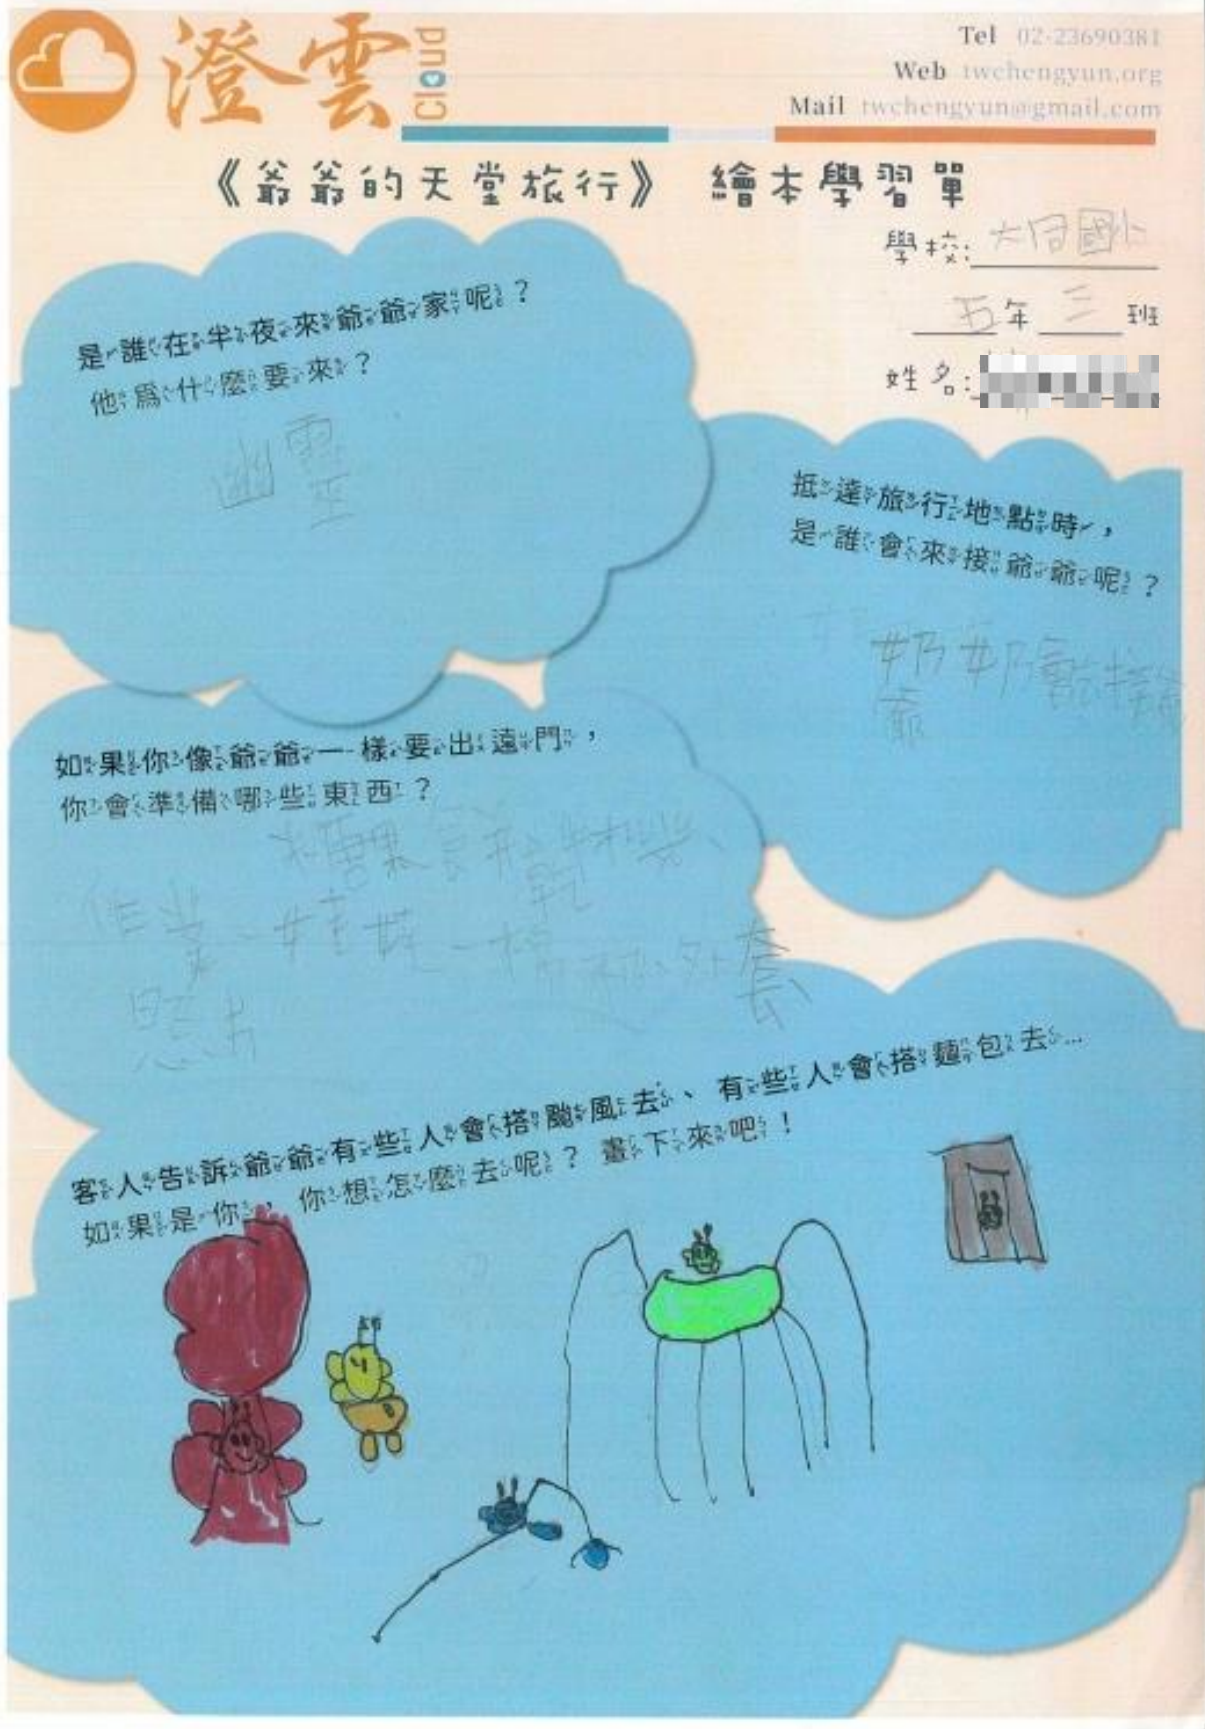 澄雲 Cloud
Tel 02-23690381
Web twchengyun.org
Mail twchengyun@gmail.com
《爺爺的天堂旅行》 繪本學習單
學校: 大同國小
五年三班
姓名:
是誰在半夜來爺爺家呢？
他為什麼要來？
幽靈
抵達旅行地點時，
是誰會來接爺爺呢？
奶奶
爺
如果你像爺爺一樣要出遠門，
你會準備哪些東西？
作業、娃娃、外套
照片
客人告訴爺爺有些人會搭颱風去、有些人會搭麵包去...
如果是你，你想怎麼去呢？畫下來吧！